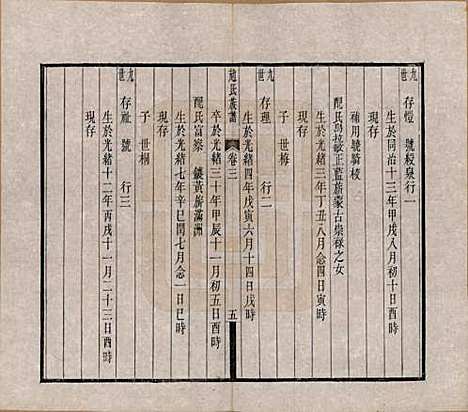 九世
存愷 號毅泉行一
生於同治十三年甲戌八月初十日酉時
現存
補用驍騎校
配氏烏拉敏正藍旗蒙古崇祿之女
生於光緒三年丁丑八月念四日寅時
子 世梅
九世
存理 號 行二
生於光緒四年戊寅六月十四日戌時
趙氏族譜
卷三
五
卒於光緒三十年甲辰十一月初五日酉時
配氏富察 鑲黃旗滿洲
生於光緒七年辛巳閏七月念一日巳時
子 世桐
現存
九世
存祉 號 行三
生於光緒十二年丙戌十一月二十三日酉時
現存